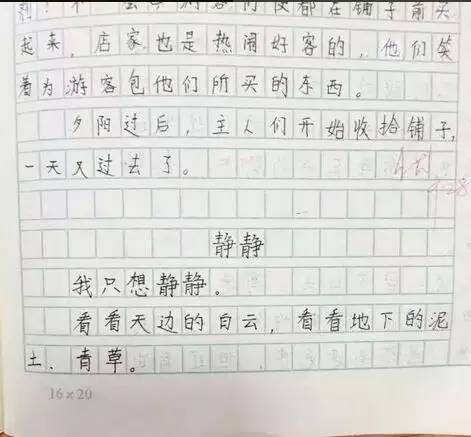 便都在铺子前买
起来，店家也是热闹好客的，他们笑
着为游客包他们所买的东西。
夕阳过后，主人们开始收拾铺子，
一天又过去了。
静静
我只想静静。
看看天边的白云，看看地下的泥
土、青草。
16×20